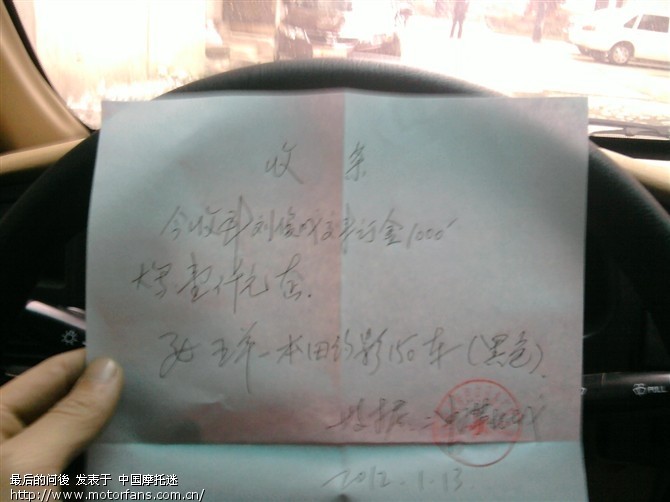 收 条
今收到刘俊 订金1000
大写壹仟元正.
五羊-本田 影150车(黑色)
2012.1.13
PULL
最后的问候 发表于 中国摩托迷
http://www.motorfans.com.cn/